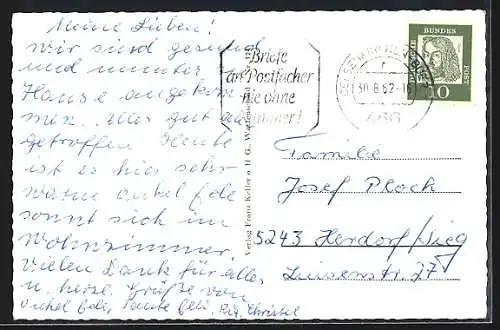 Meine Lieben!
Wir sind gesund
und munter zu
Hause angekom
men. Alles gut an
getroffen. Heute
ist es hier sehr
warm onkel fele
sonnt sich im
Wohnzimmer.
Vielen Dank für alles
u. herzl. Grüße von
onkel feli, Tante feli,
Christel
Briefe
an Postfächer
nie ohne
Nummer!
30.8.62
466
DEUTSCHE
BUNDES
POST
10
Verlag Franz Keller o H G.,
Familie
Josef Ploch
5243 Herdorf/Sieg
Luisenstr. 27